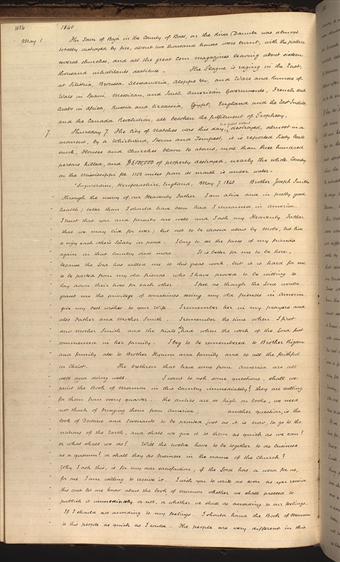 1840
May 1
The Town of Baja in the County of Bacs, on the River Danube was almost
totally destroyed by fire, about two thousand houses were burnt, with the palace
several churches, and all the great corn magazines leaving about sixteen
thousand inhabitants destitute. The Plague is raging in the East,
at Silistria, Broussa, Alexandria, Aleppo &c, and Wars and rumors of
Wars in Spain, Mexican, and South American Governments, French and
Arabs in Africa, Russia and Circassia, Egypt, England and the East Indies
and the Canada Revolution, all betoken the fulfilment of Prophecy.
7 Thursday 7. The City of Natchez was this day destroyed, almost in a
moment, by a Whirlwind, Storm and Tempest, it is reported Sixty Boats
sunk, Houses and Churches blown to atoms, more than three hundred
persons killed, and of property destroyed, nearly the whole County
on the Mississippi for miles from its mouth is under water.
Herefordshire, England, May 7. 1840 Brother Joseph Smith
Through the mercy of our Heavenly Father I am alive and in pretty good
health; better than I should have been had I remained in America.
I trust that you and family are well and I ask my Heavenly Father
that we may live for ever; but not to be chased about by Mobs, but live
to enjoy each others Society in peace. I long to see the faces of my friends
again in this Country once more. It is better for me to be here,
because the Lord has called me to this great work, but it is hard for me
to be parted from my old friends who I have proved to be willing to
lay down their lives for each other. I feel as though the Lord would
grant me the privilege of sometime seeing my old friends in America
give my best wishes to your Wife. I remember her in my prayers and
also Father and Mother Smith. I remember the time when I first
saw Mother Smith and the trials she had when the work of the Lord first
commenced in her family. I beg to be remembered to Brother Hyrum
and family also to Brother and family and to all the faithful
in Christ. The brethren that have come from America are all
well and doing well. I want to ask some questions, shall we
print the Book of Mormon in this Country immediately? they are calling
for them from every quarter. the duties are so high on books, we need
not think of bringing them from America. another question, is the
book of Doctrine and Covenants to be printed just as it is now, to go to the
nations of the Earth, and shall we give it to them as quick as we can?
or what shall we do? Will the twelve have to be together to do business
as a quorum? or shall they do business in the name of the church?
Why I ask this, is for my own satisfaction, if the Lord has a word for us,
for one I am willing to receive it. I wish you to write as soon as you receive
this and let me know about the book of mormon whether we shall proceed to
publish it immediately or not, or whether we shall do according to our feelings.
If I should act according to my feelings, I should hand the Book of Mormon
to this people as quick as I could. The people are very different in this